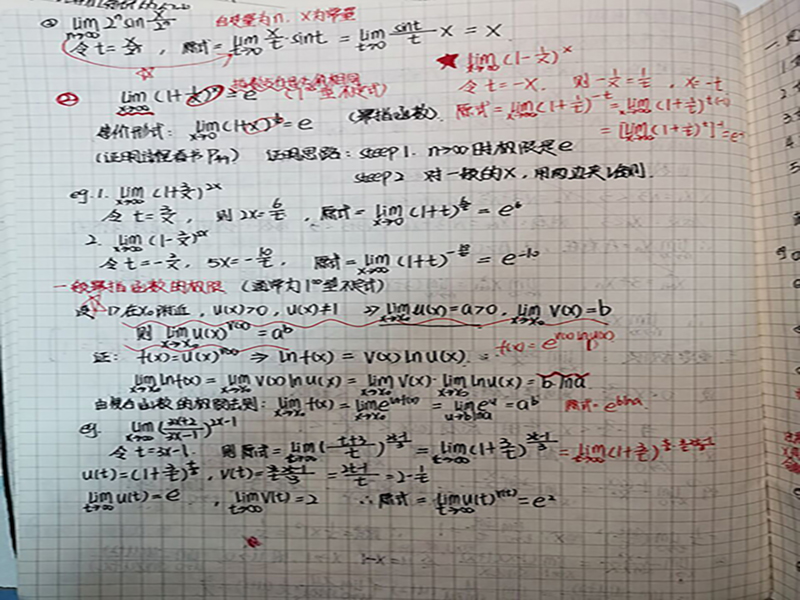 ① lim n→∞ 2ⁿ sin x/2ⁿ 自变量为n, x为常量
令 t = x/2ⁿ, 原式 = lim t→0 x/t · sint = lim t→0 sint/t · x = x
★ lim x→∞ (1-1/x)^x
令 t=-x. 则 -1/x = 1/t, x=-t
原式 = lim x→∞ (1+1/t)^-t = lim x→∞ (1+1/t)^t·(-1)
= [lim x→∞ (1+1/t)^t]^-1 = e^-1
② lim x→∞ (1+1/x)^x = e (1^∞型不定式)
等价形式: lim x→0 (1+x)^1/x = e (幂指函数).
(证明过程看书P44) 证明思路: steep 1. n→∞时极限是e
steep 2 对一般的x, 用两边夹法则.
eg. 1. lim x→∞ (1+3/x)^2x
令 t=3/x, 则 2x=6/t, 原式 = lim x→0 (1+t)^6/t = e^6
2. lim x→∞ (1-2/x)^5x
令 t=-2/x, 5x=-10/t, 原式 = lim x→∞ (1+t)^-10/t = e^-10
一般幂指函数的极限 (通常为1^∞型不定式)
设 1) 在x₀附近, u(x)>0, u(x)≠1 ⇒ lim x→x₀ u(x)=a>0, lim x→x₀ v(x)=b
则 lim x→x₀ u(x)^v(x) = a^b
证: f(x)=u(x)^v(x) ⇒ ln f(x) = v(x) ln u(x). f(x)=e^v(x)lnu(x)
lim x→x₀ lnf(x) = lim x→x₀ v(x) ln u(x) = lim x→x₀ v(x)· lim x→x₀ ln u(x) = b lna
由复合函数的极限法则: lim x→x₀ f(x) = lim x→x₀ e^lnf(x) = lim u→blna e^u = a^b 原式=e^blna
eg. lim x→∞ (3x+2/3x-1)^2x-1
令 t=3x-1. 则原式 = lim t→∞ (t+3/t)^2t-1/3 = lim t→∞ (1+3/t)^2t-1/3 = lim t→∞ (1+3/t)^t/3·3/t·2t-1/3
u(t)=(1+3/t)^t/3, v(t)=3/t·2t-1/3 = 2t-1/t = 2-1/t
lim t→∞ u(t)=e, lim t→∞ v(t)=2 ∴原式 = lim t→∞ u(t)^v(t) = e²